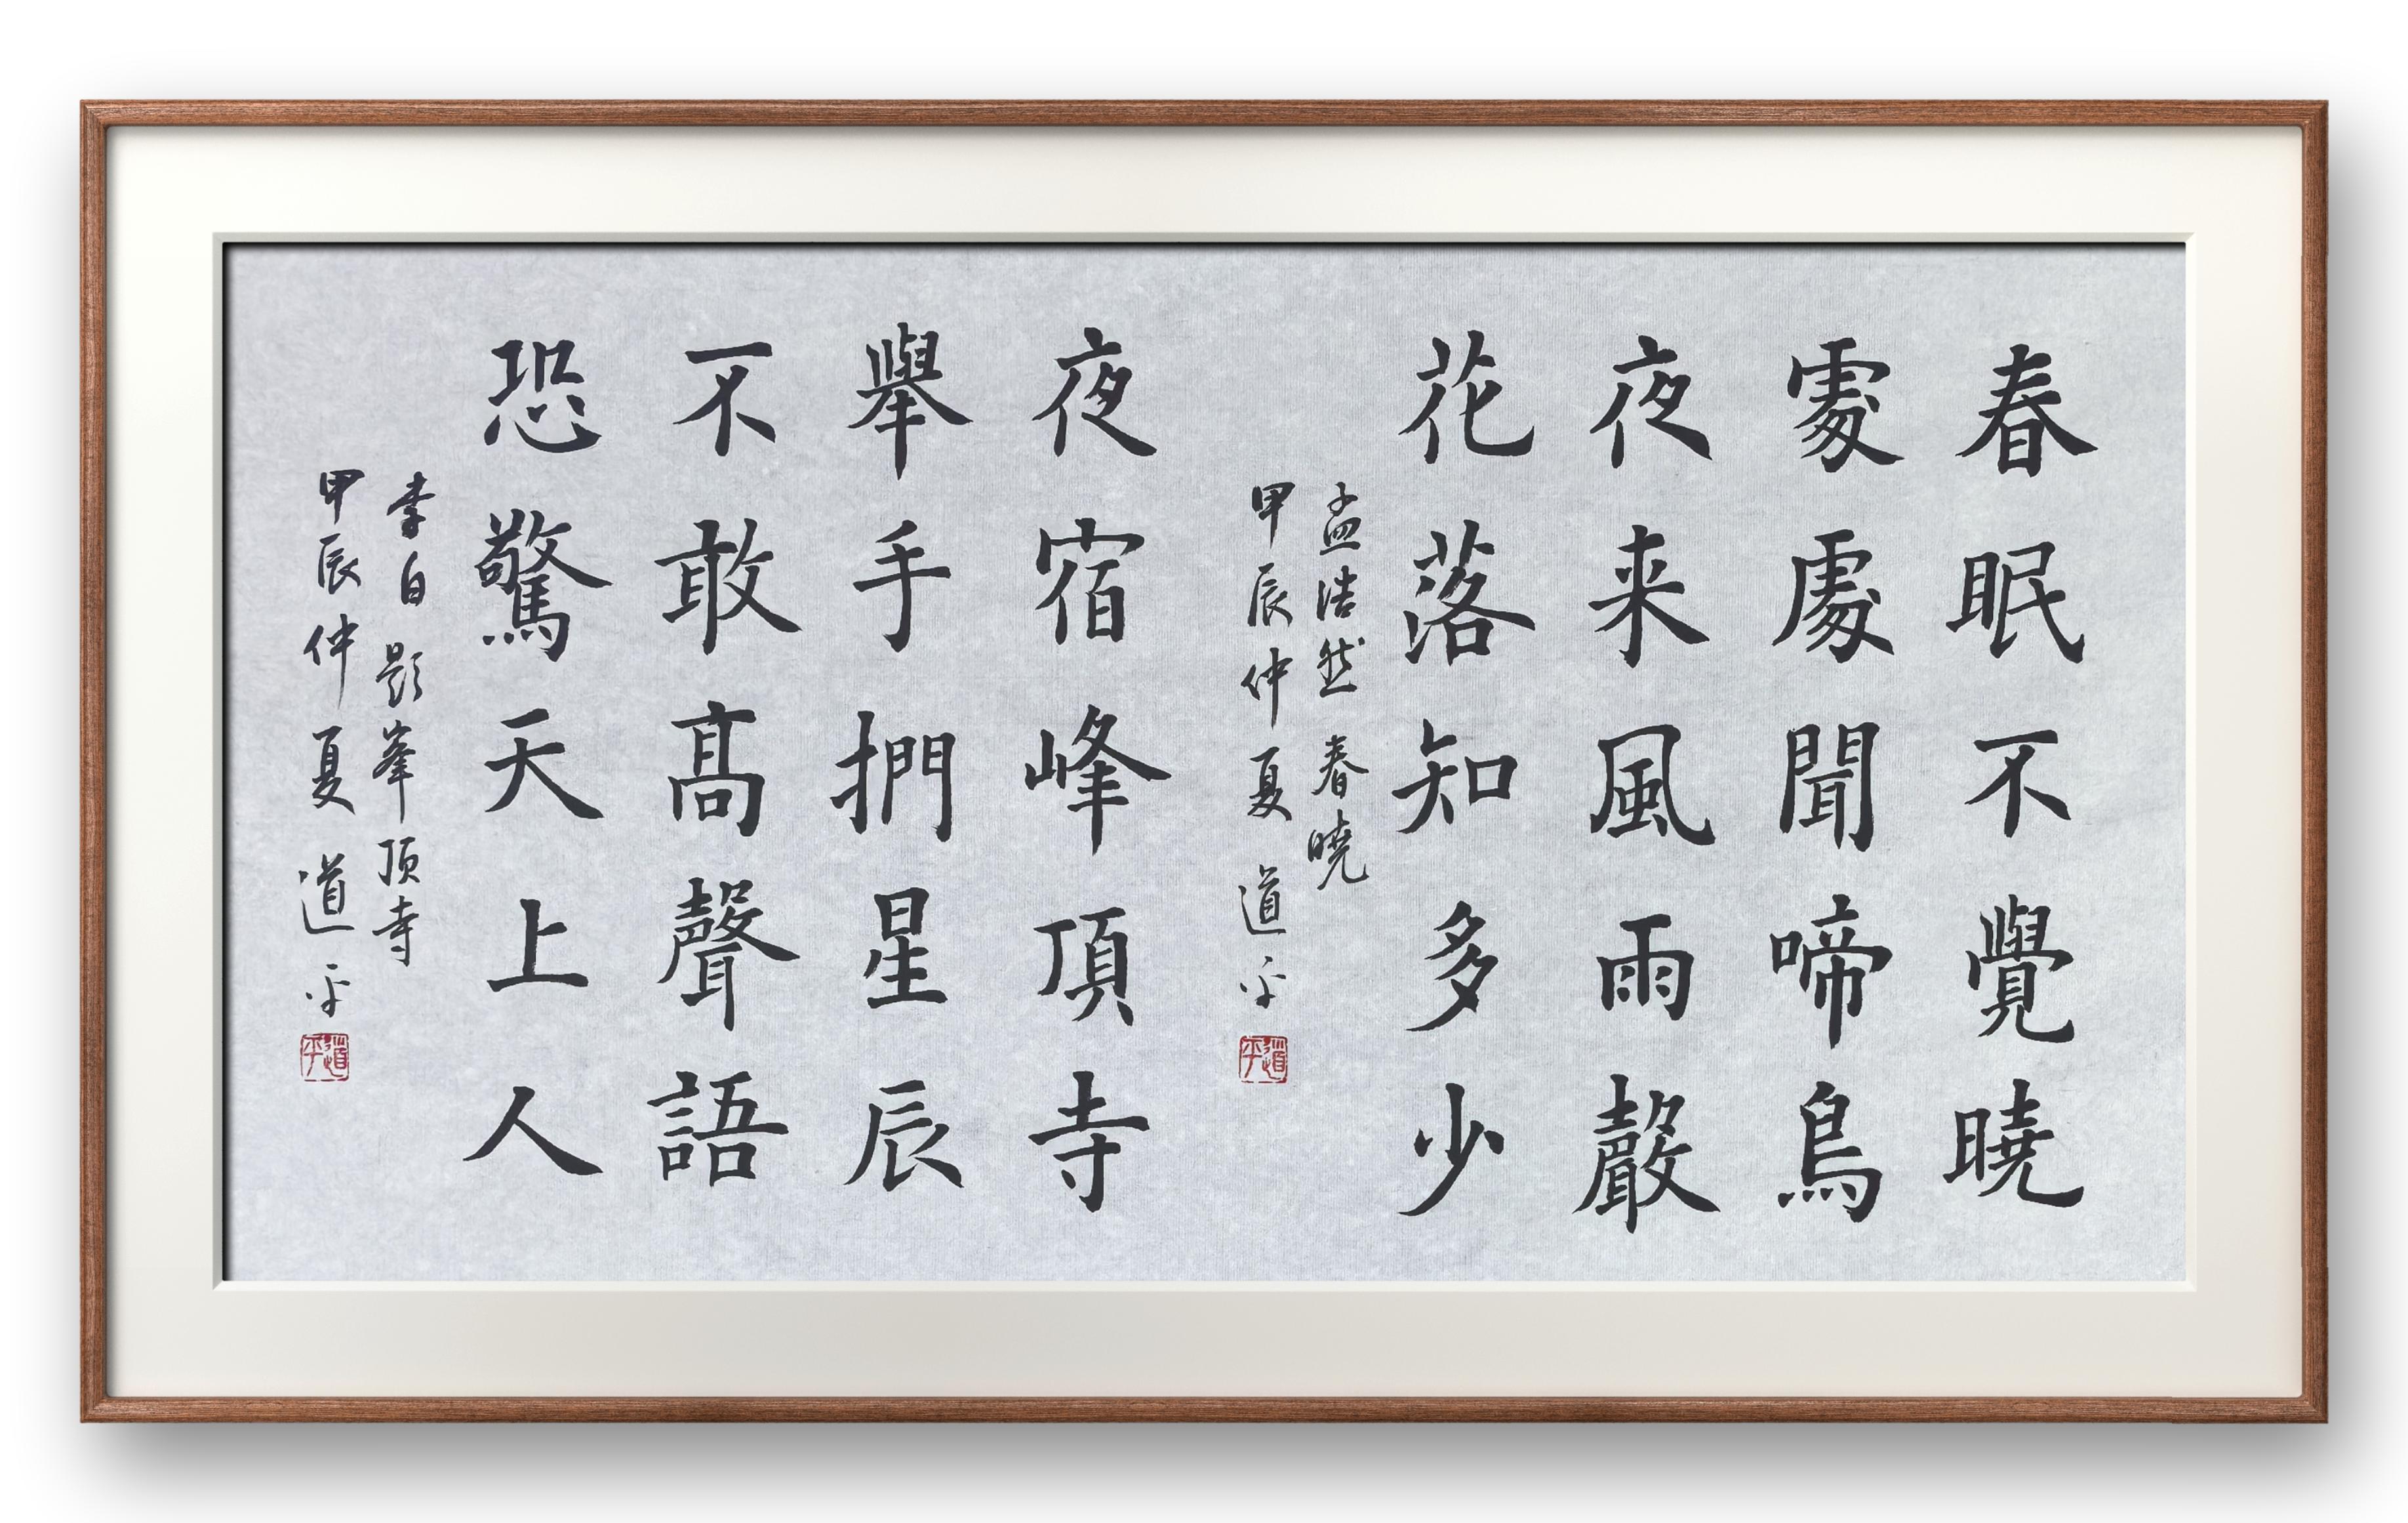 春眠不覺暁
處處聞啼鳥
夜来風雨聲
花落知多少
孟浩然 春暁
甲辰仲夏 道平
道平
夜宿峰頂寺
舉手捫星辰
不敢髙聲語
恐驚天上人
李白 题峯顶寺
甲辰仲夏 道平
道平